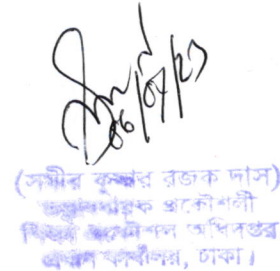 06/07/23
(সমীর কুমার রজক দাস)
তত্ত্বাবধায়ক প্রকৌশলী
শিক্ষা প্রকৌশল অধিদপ্তর
প্রধান কার্যালয়, ঢাকা।